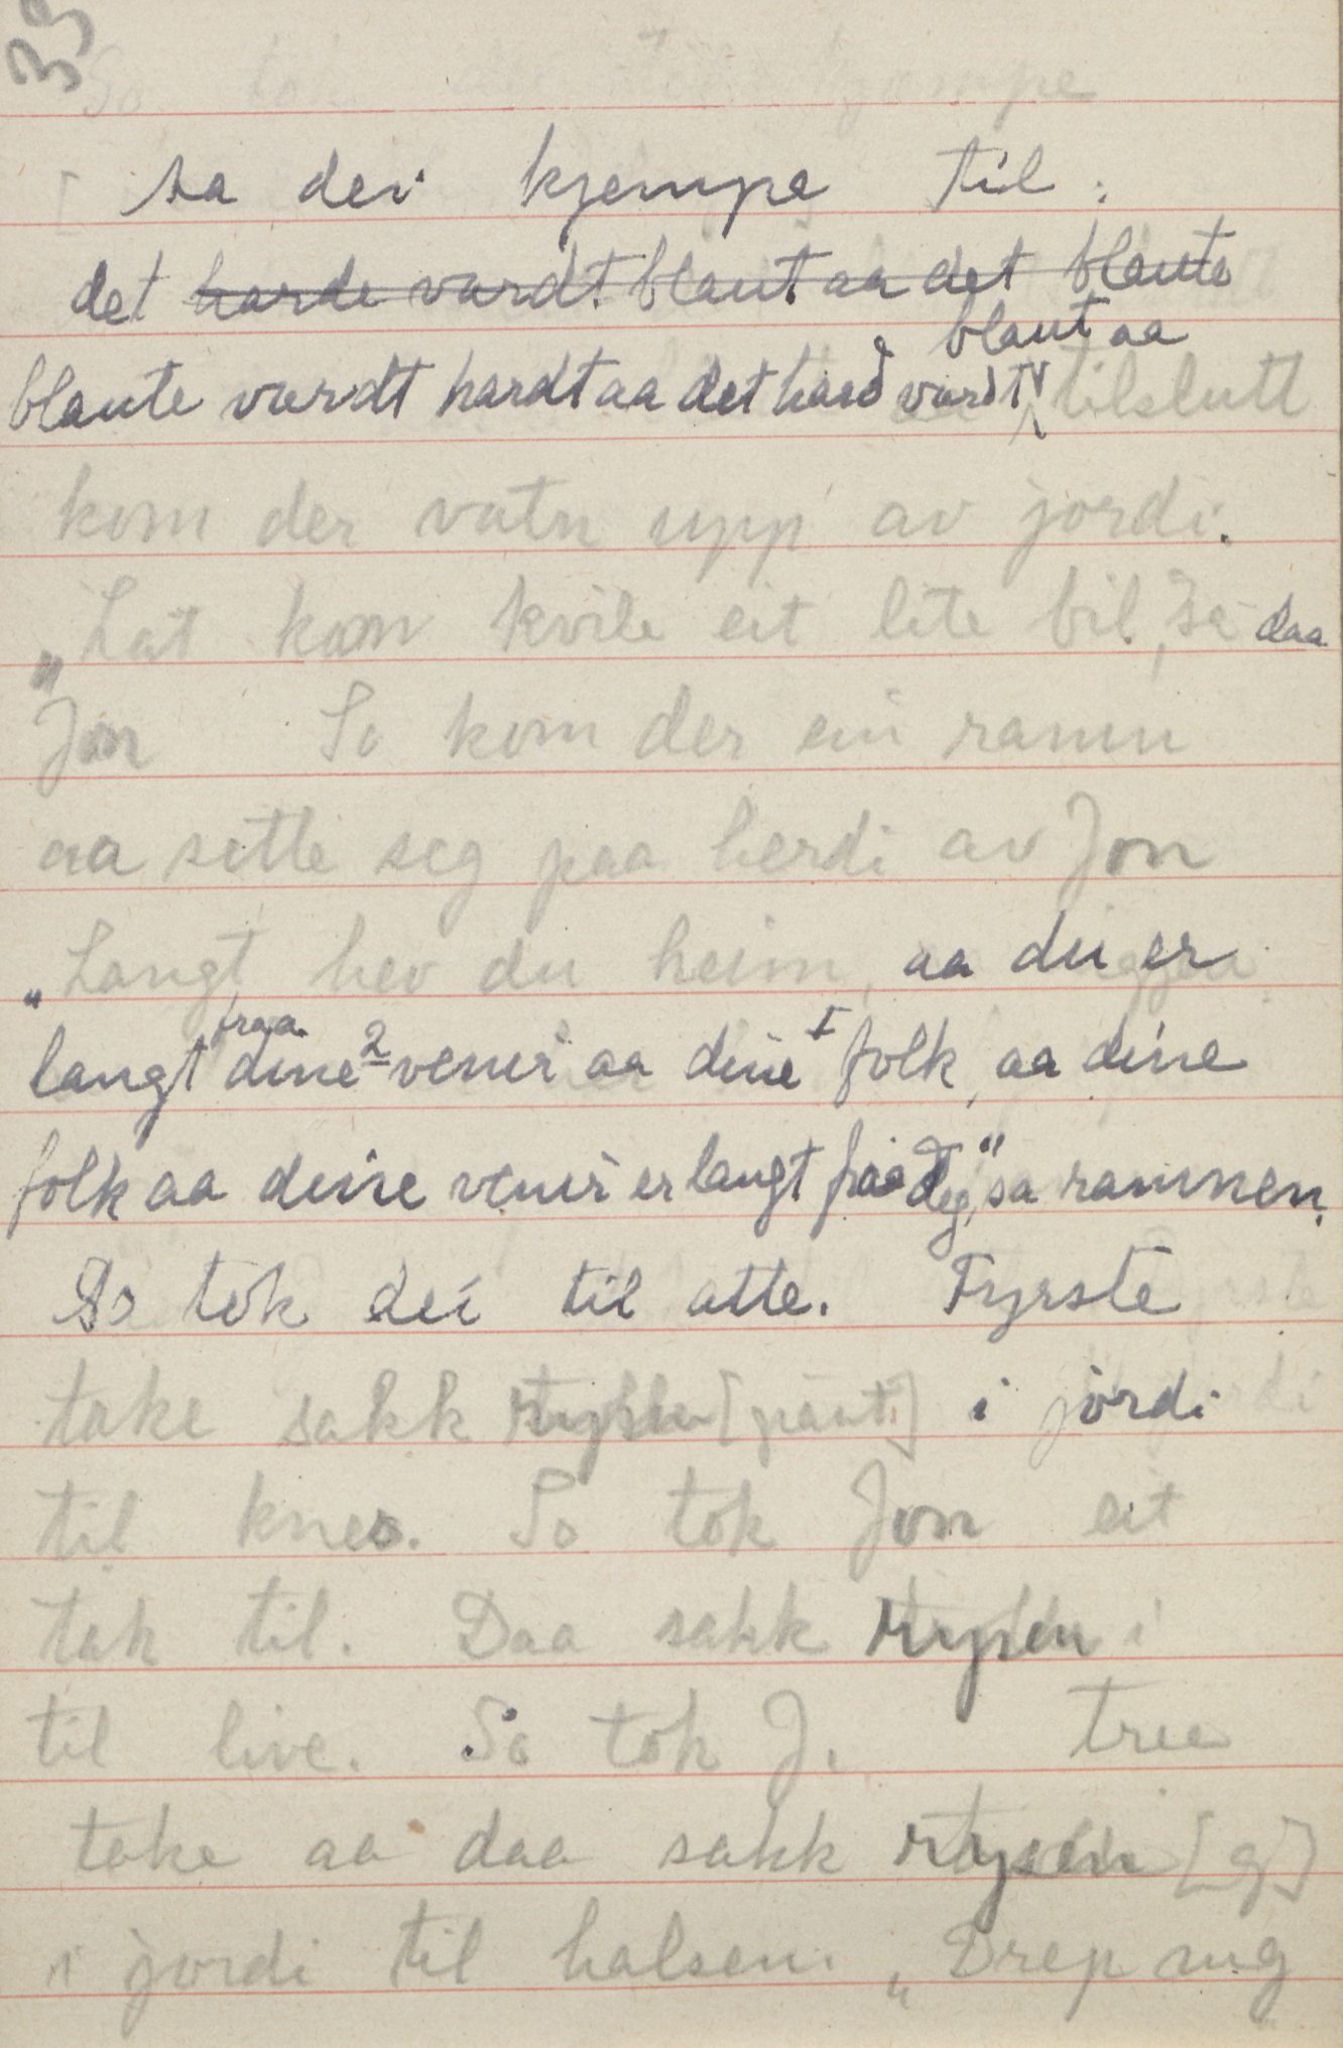 39
sa dei kjempe til.
det harde vardt blaut aa det blaute
blaut aa
blaute vardt hardt aa det hard vardt tilslutt
kom der vatn upp av jordi.
„Lat kom kvile eit lite bil," sa daa
Jon So kom der ein ramn
aa sette seg paa herdi av Jon
„Langt hev du heim, aa du er
fraa 2 I
langt dine venir aa dine folk, aa dine
folk aa deine venir er langt fraa deg," sa ramnen.
So tok dei til atte. Fyrste
take sakk rysen [giant] i jordi
til knes. So tok Jon eit
tak til. Daa sakk rysen i
til live. So tok J. tree
take aa daa sakk rysen [g]
i jordi til halsen. „Drep meg